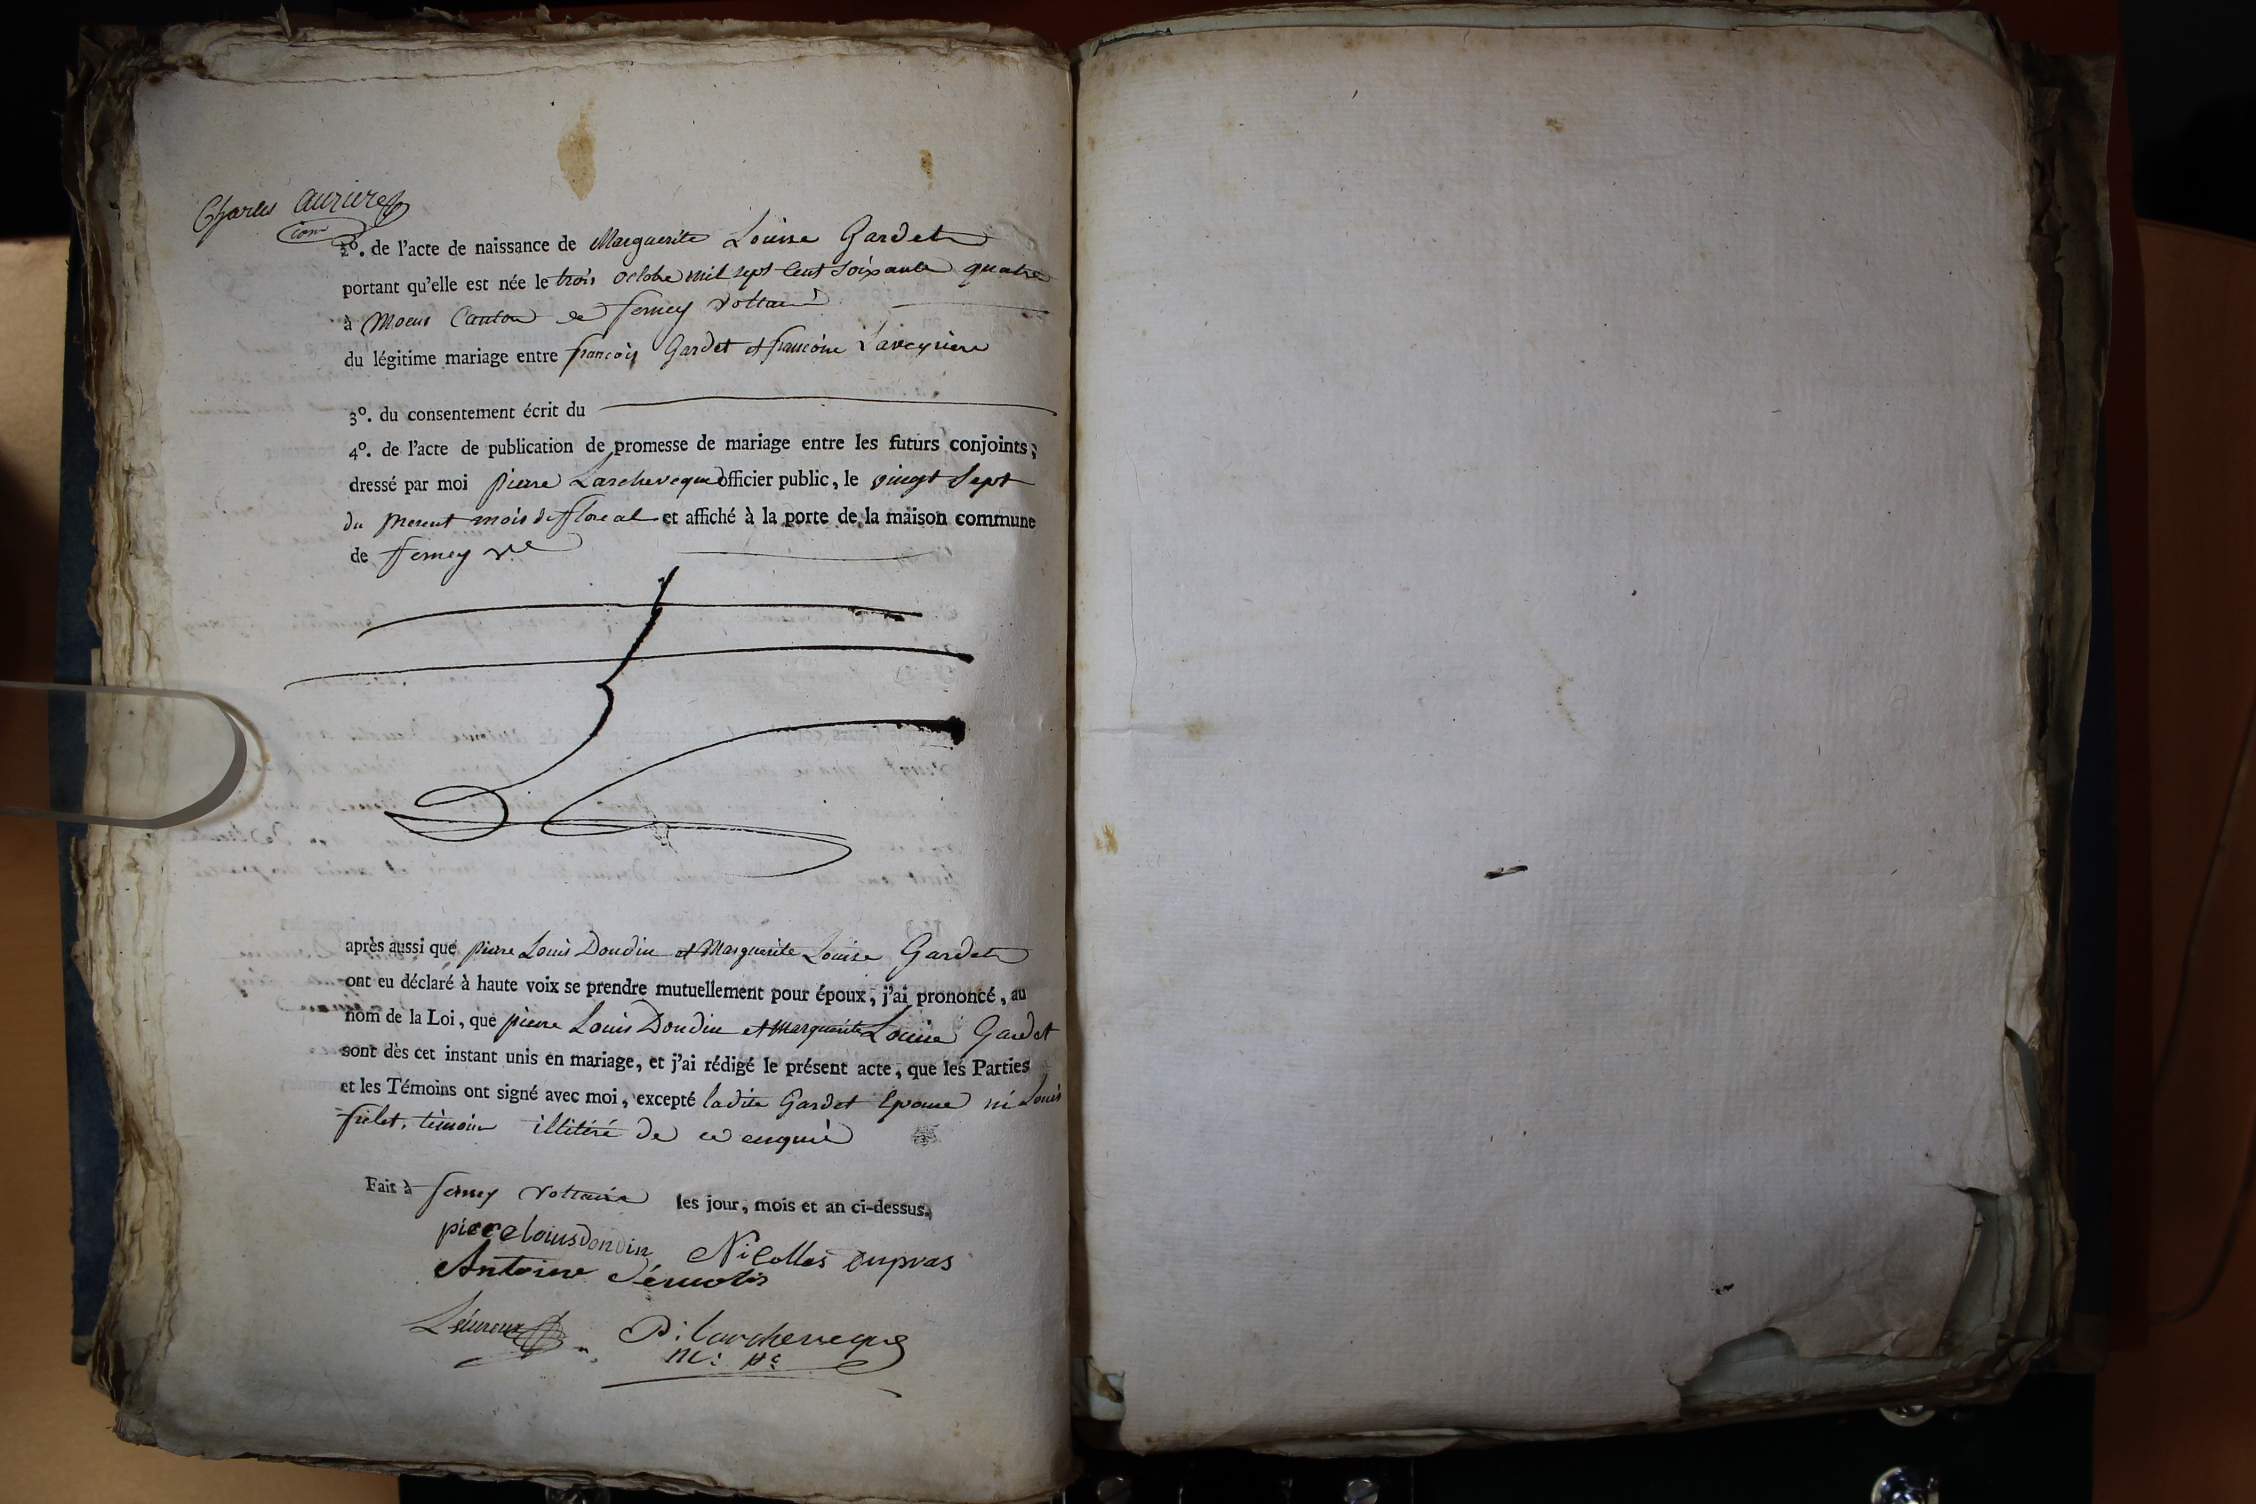 Charles auzieres
com
2º. de l'acte de naissance de Marguerite Louise Gardet
portant qu'elle est née le trois octobre mil sept cent soixante quatre
à Moens Canton de ferney voltaire
du légitime mariage entre françois Gardet et françoise Laveyriere
3º. du consentement écrit du
4º. de l'acte de publication de promesse de mariage entre les futurs conjoints;
dressé par moi pierre Larcheveque officier public, le vingt sept
du present mois de floreal et affiché à la porte de la maison commune
de fferney v.e
après aussi que pierre Louis Doudin et Marguerite Louise Gardet
ont eu déclaré à haute voix se prendre mutuellement pour époux, j'ai prononcé, au
nom de la Loi, que pierre Louis Doudin et Marguerite Louise Gardet
sont dès cet instant unis en mariage, et j'ai rédigé le présent acte, que les Parties
et les Témoins ont signé avec moi, excepté ladite Gardet Epouse ni Louis
frelet, témoin illitéré de ce enquis
Fait à ferney voltaire les jour, mois et an ci-dessus.
pierre louis dondin Nicollas dupras
Antoine
P: Larcheveque